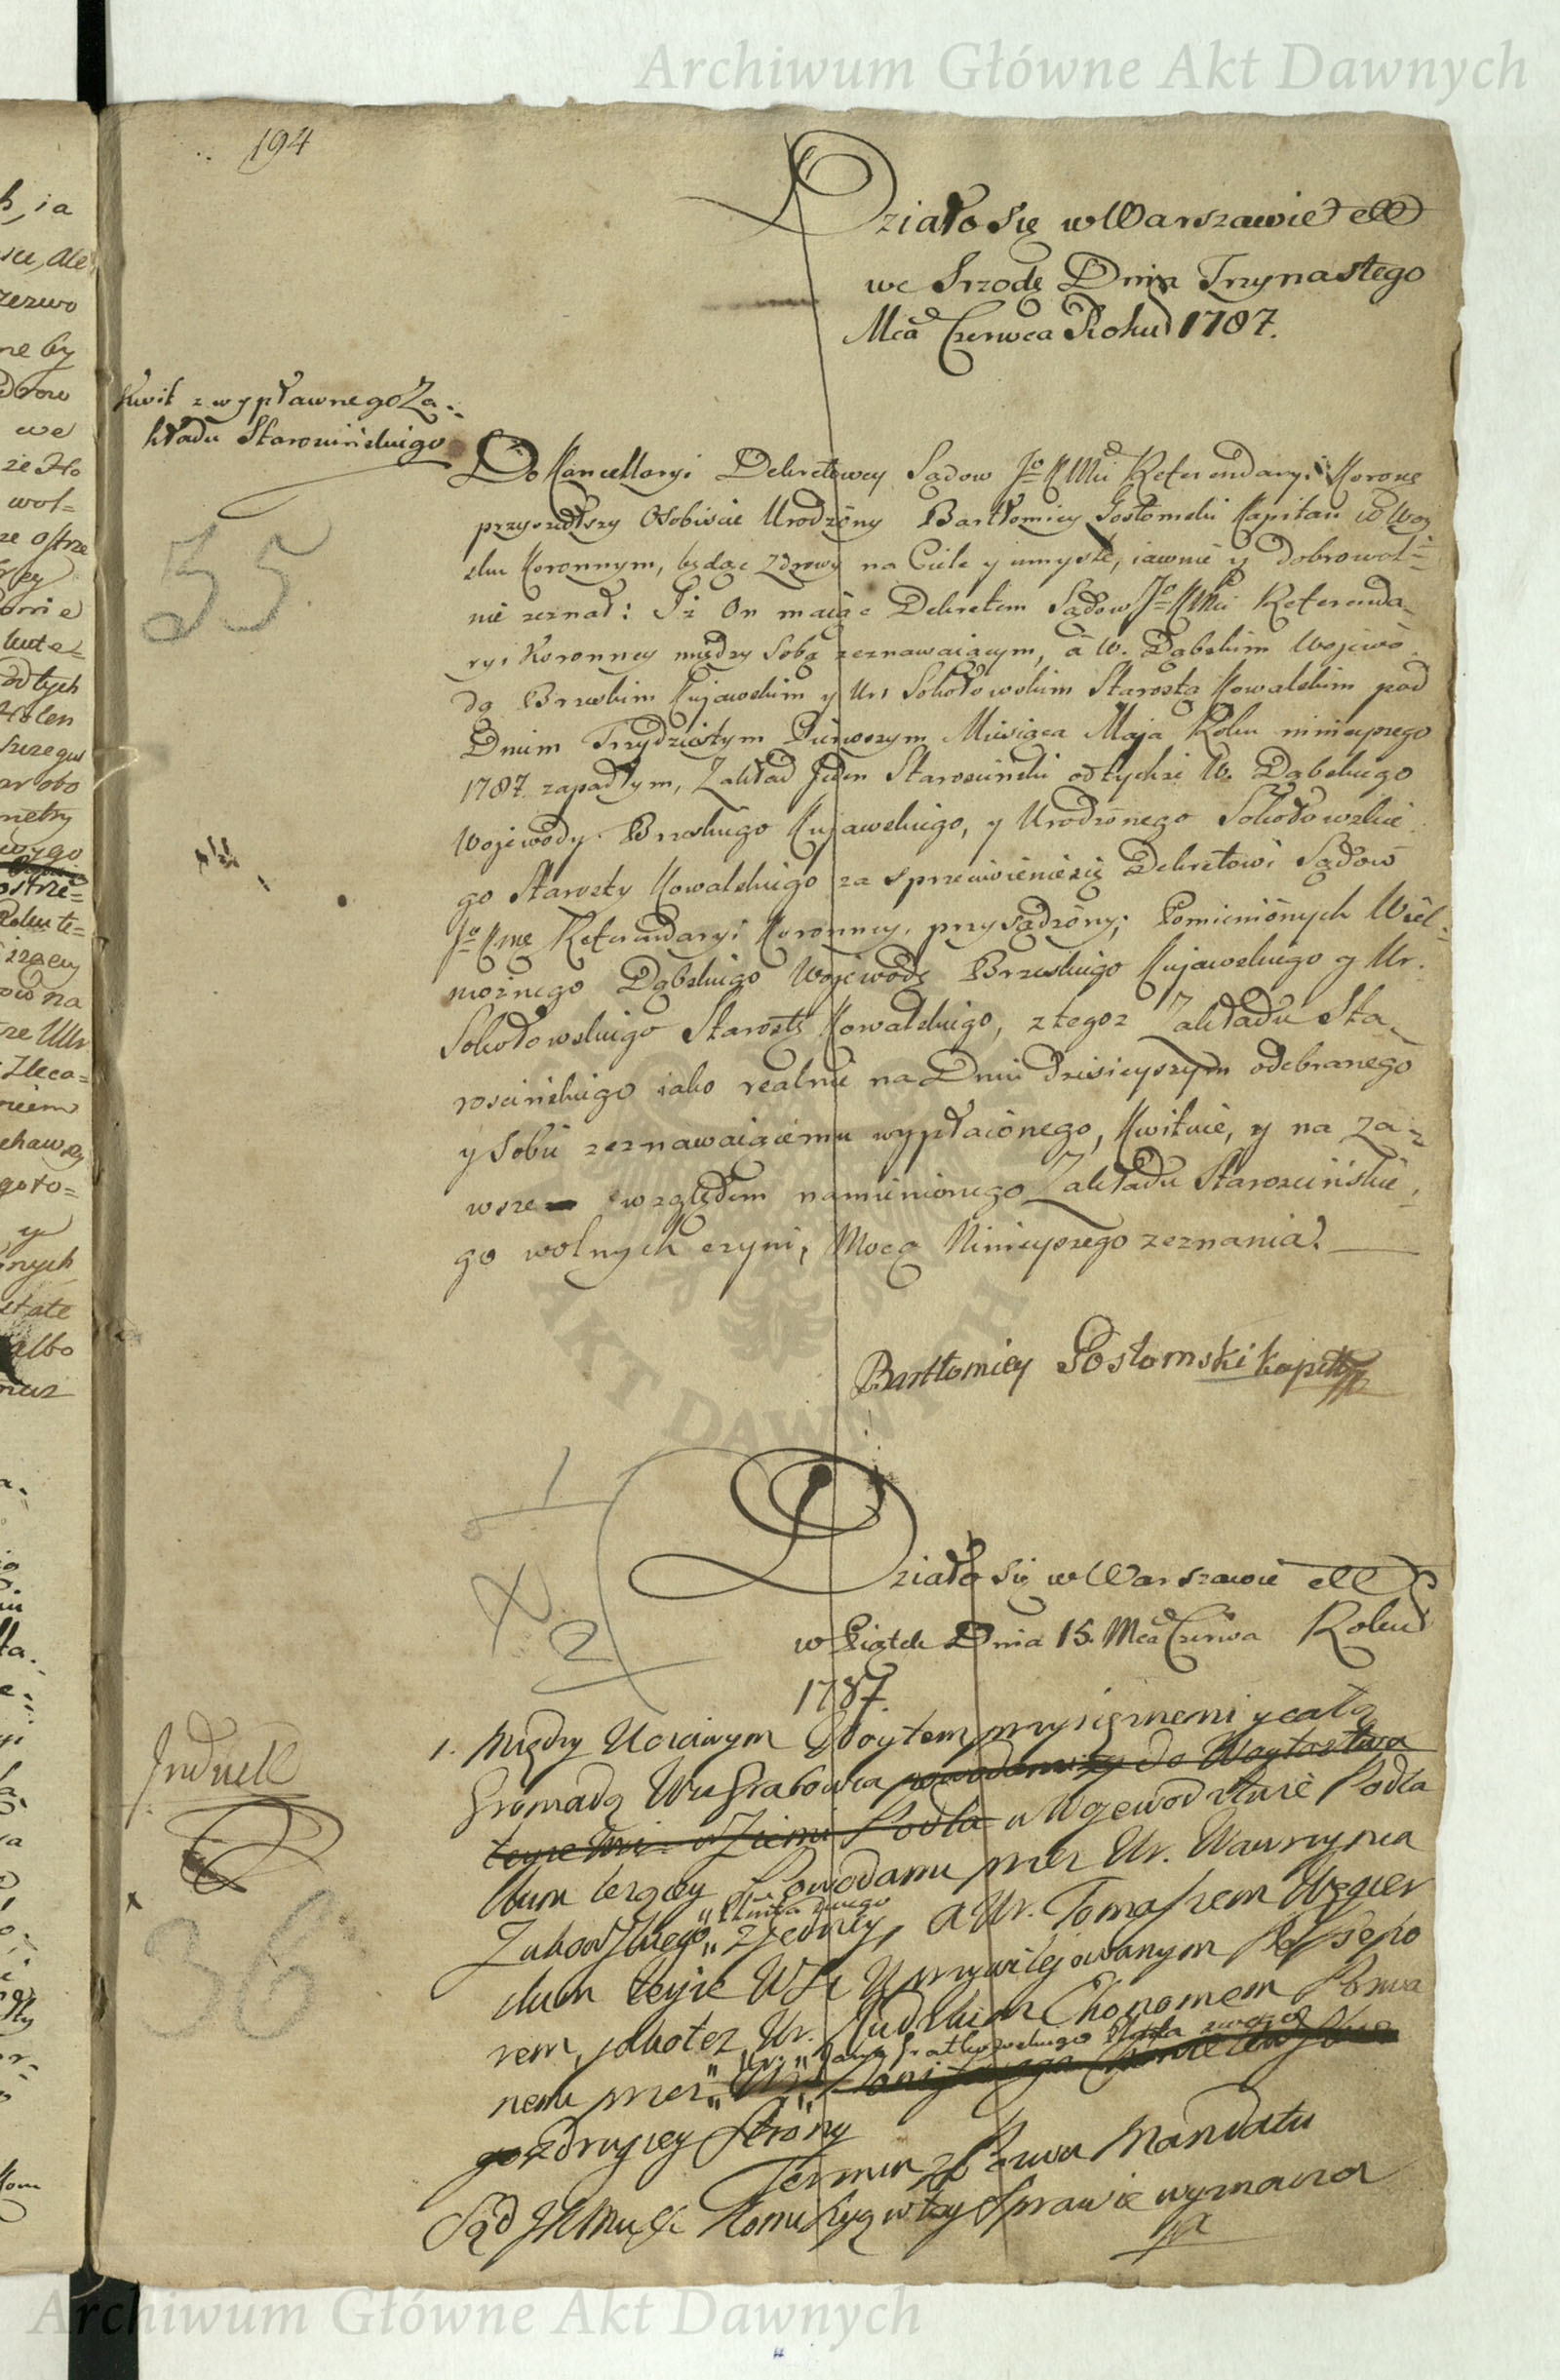 Archiwum Główne Akt Dawnych
194
Działo się w Warszawie
we Srzodę Dnia Trzynastego
Mca Czerwca Roku 1787.
Kwit z wypławnego Za-
kładu Starościńskiego
Do Kancellaryi Dekretowey Sądow Jo KMci Referendaryi Koronę
przyszedłszy Osobiście Urodzony Bartłomiey Gostomski Kapitan w Woy
sku Koronnym, będąc zdrowy na Ciele y umyśle, iawnie y dobrowol=
nie zeznał: Iż On maiąc Dekretem Sądow Jo KMci Referenda-
ryi Koronney między Sobą zeznawaiącym, à W. Dąbskim Wojewo
dą Brzeskim Kujawskim y Ur. Sokołowskim Starostą Kowalskim pod
Dniem Trzydziestym Pierwszym Miesiąca Maja Roku ninieyszego
1787. zapadłym, Zakład Jeden Starościnski od tychże W. Dąbskiego
Wojewody Brzeskiego Kujawskiego, y Urodzonego Sokołowskie
go Starosty Kowalskiego za sprzeciwienie się Dekretowi Sądow
Jo KMci Referendaryi Koronney, przysądzony; Pomienionych Wiel-
możnego Dąbskiego Wojewodę Brzeskiego Kujawskiego y Ur.
Sokołowskiego Starostę Kowalskiego, z tegoz Zakładu Sta-
rościnskiego iako realnie na Dniu dzisieyszym odebranego
y Sobie zeznawaiącemu wypłaconego, Kwituie, y na za-
wsze względem namienionego Zakładu Starościńskie-
go wolnych czyni, Mocą Ninieyszego zeznania.
35
Bartłomiey Gostomski kapitan
1
2
Działo się w Warszawie
w Piątek Dnia 15. Mca Czerwca Roku
1787.
1. Między Uczciwym Woytem przysięznemi y całą
Gromadą Wsi Grabowca do Woytostwa
teyże Wsi w Ziemi Podla w Wojewodztwie Podla
skim lezącey Powodami przez Ur. Wawrzynca
Zukowskiego Plenta swego z jedney, a Ur. Tomaszem Węgier
skim teyże Wsi Uprzywilejowanym Possesso
rem, jakotez Ur. Chonomem Pozwa
nemi przez Ur. swego
go z drugiey Strony
Termin z Pozwu Mandatu
Sąd JKMci Kommissyą w tey Sprawie wyznacza
36
Archiwum Główne Akt Dawnych
AKT DAWNYCH